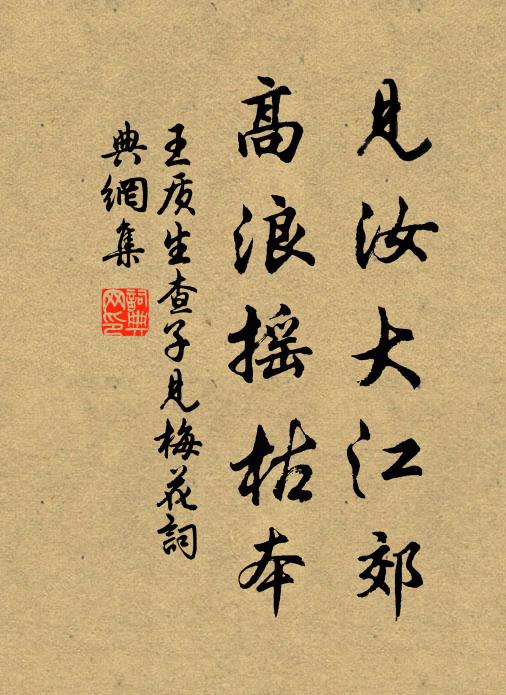 见汝大江郊
高浪摇枯本
王质生查子见梅花詞
典網集
詞典網印